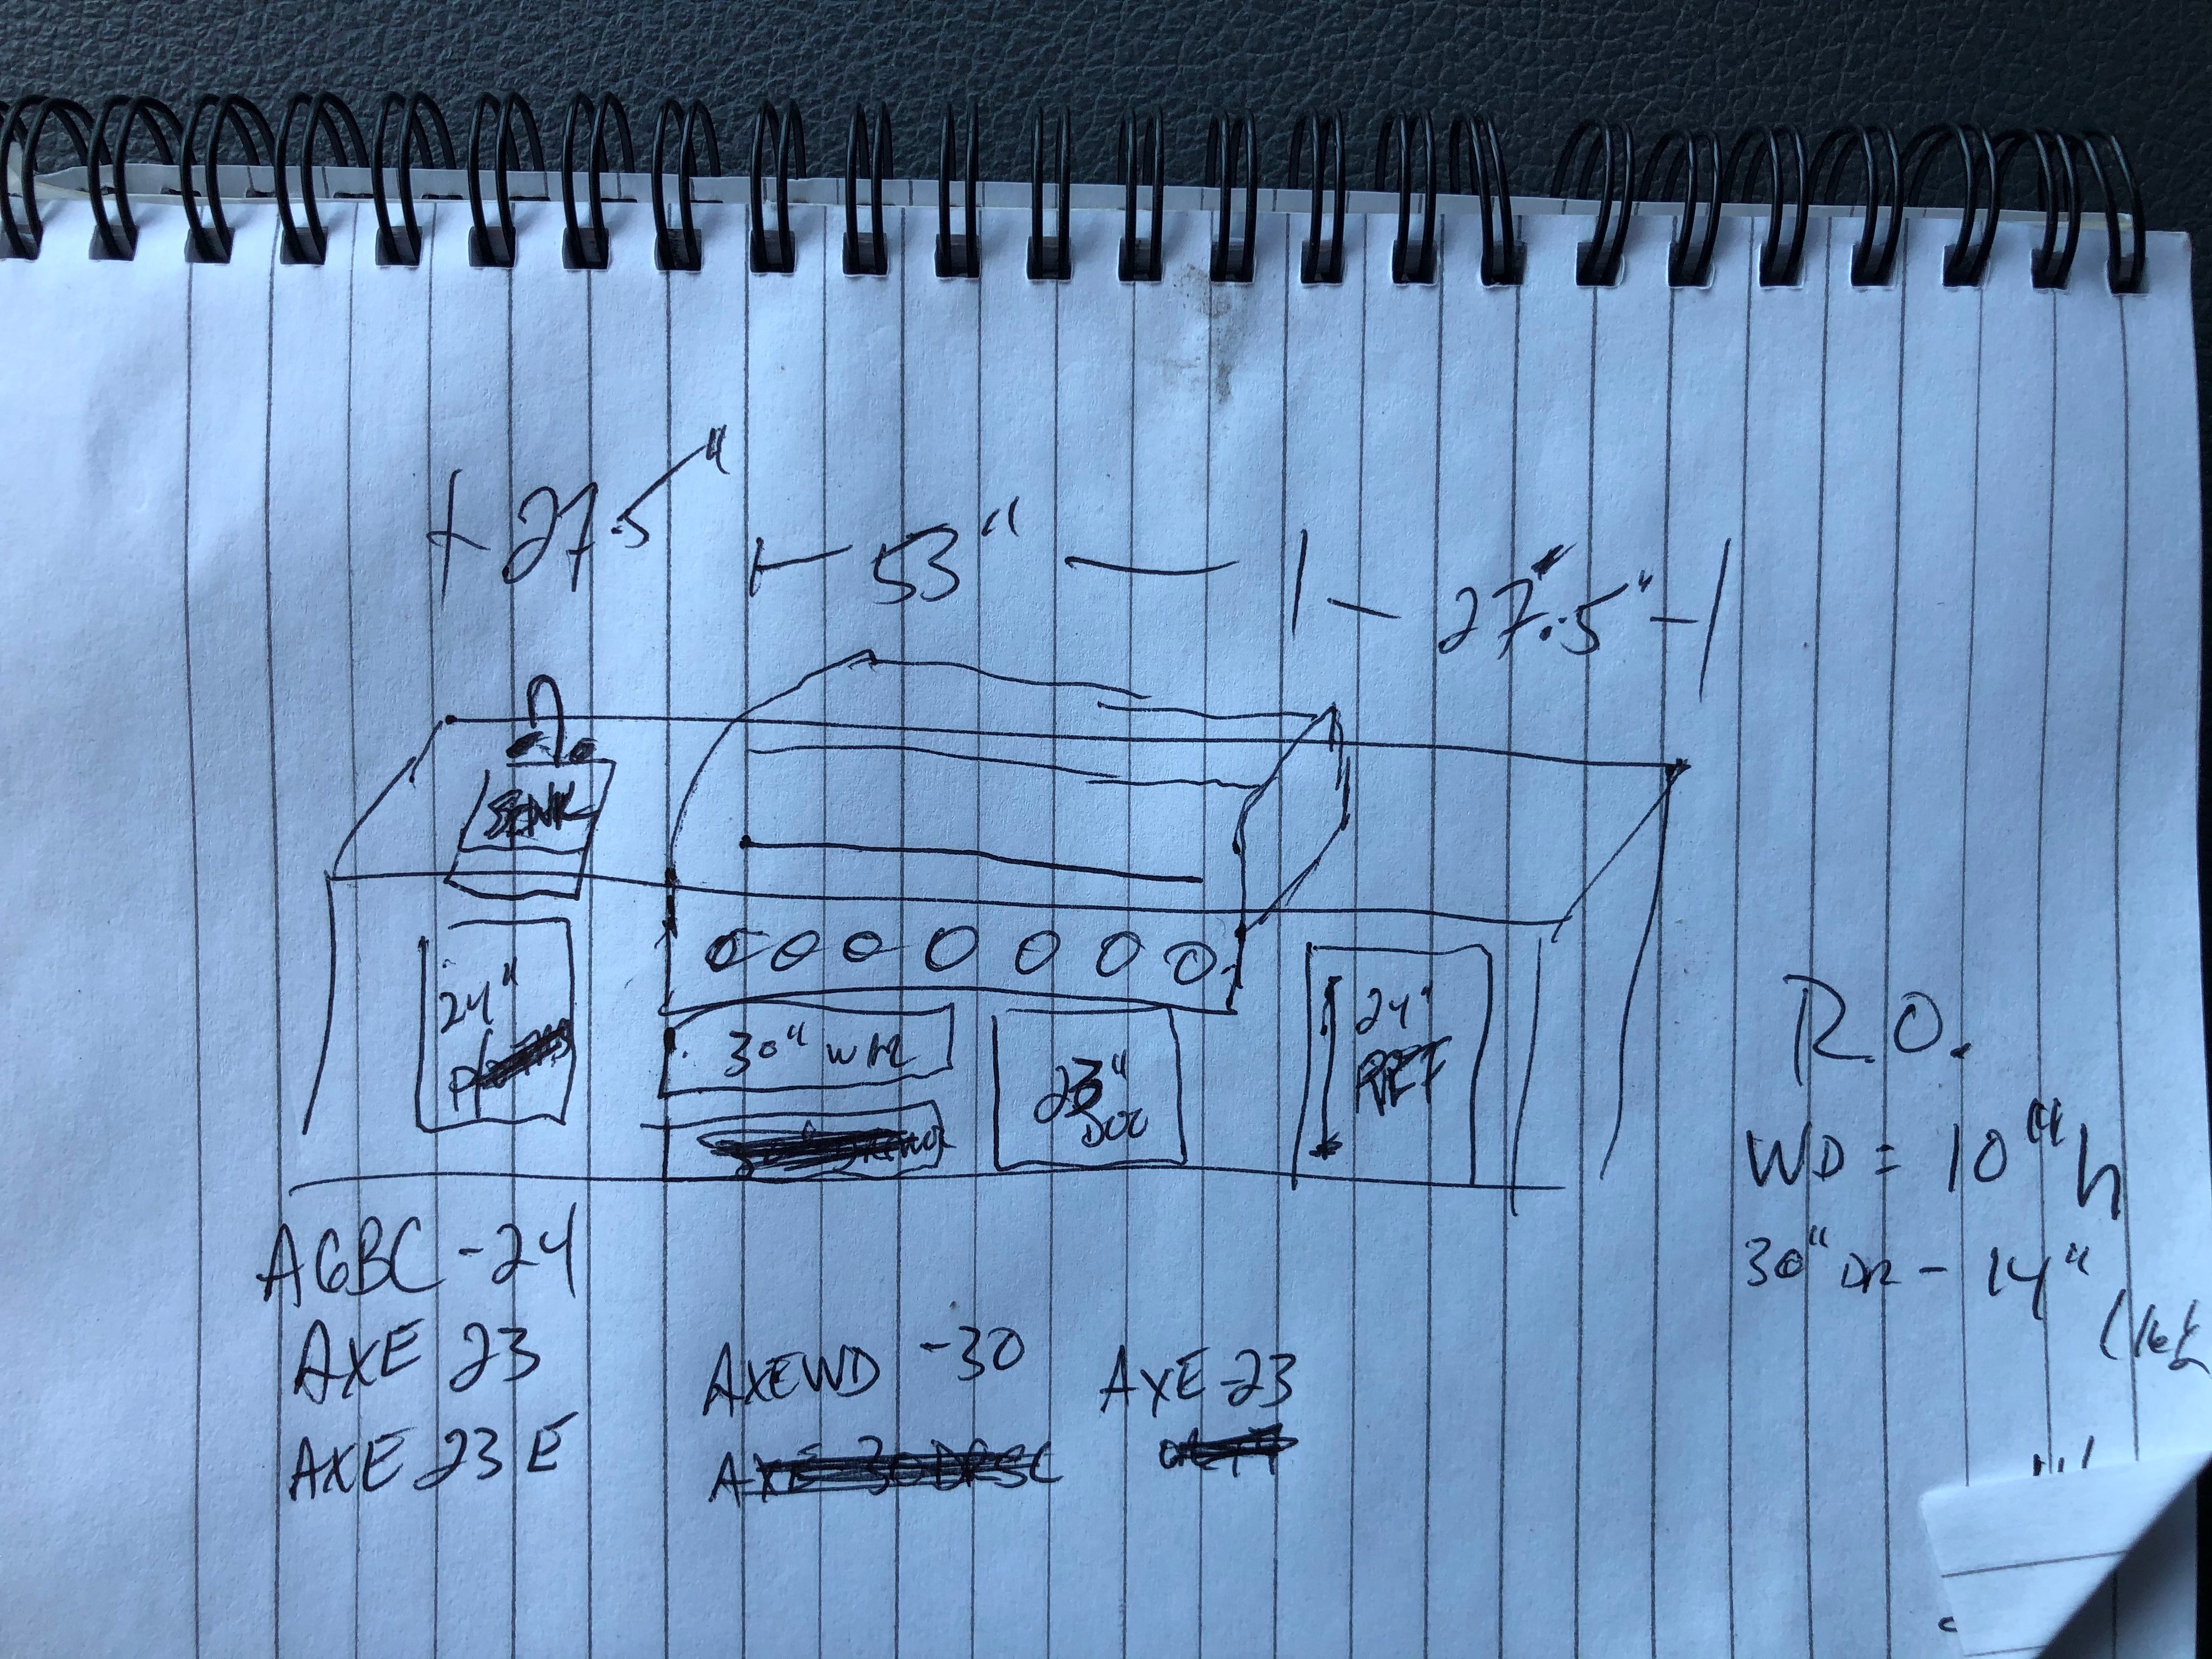 27.5"
53"
27.5"
SINK
24"
30" WD
23"
DOC
24"
REF
R.O.
WD = 10" h
30" DR - 14"
AGBC - 24
AXE 23
AXE 23 E
AXEWD - 30
AXE 30 DRSC
AXE - 23